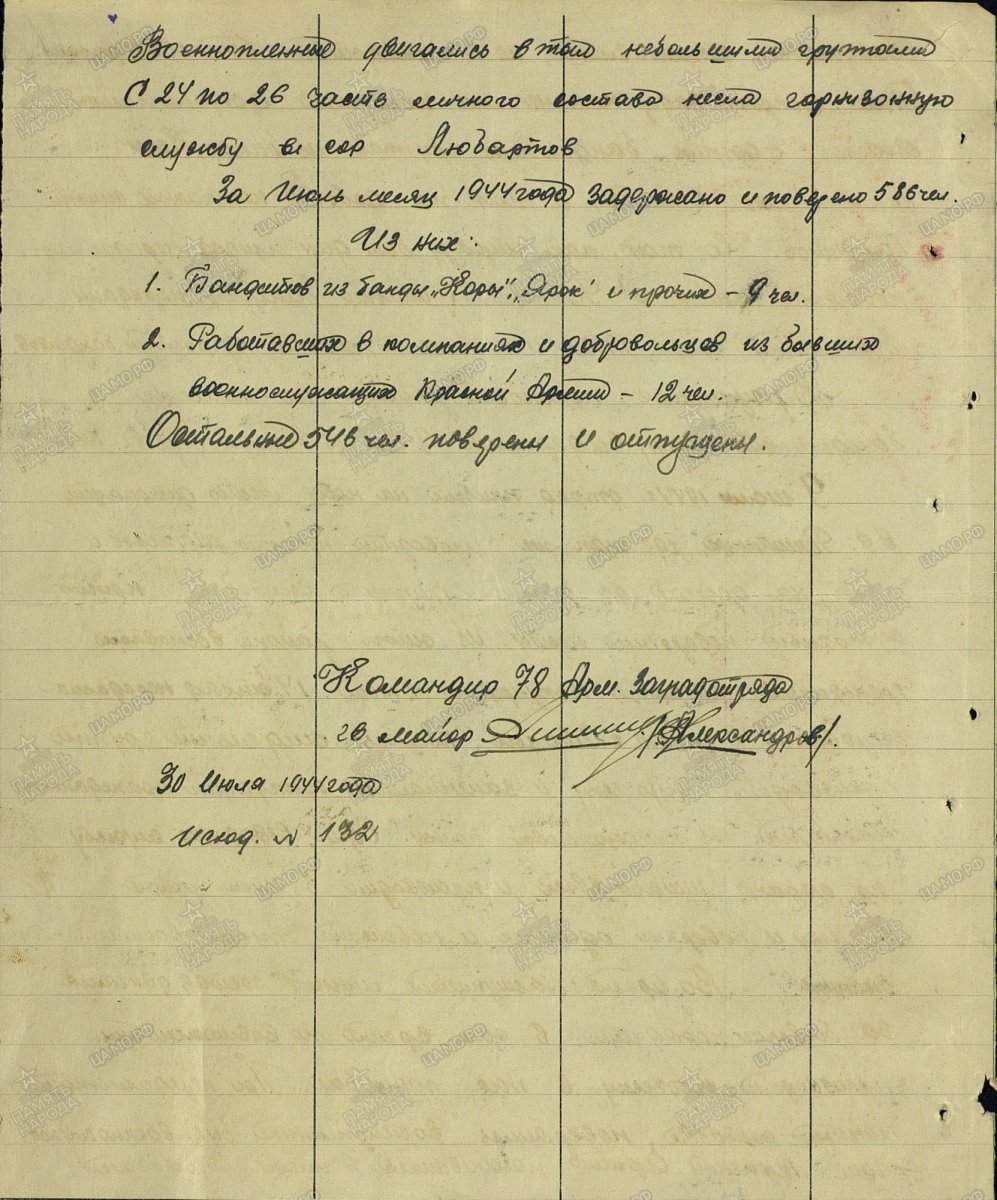 Военнопленные двигались в тыл небольшими группами
С 24 по 26 часть личного состава несла гарнизонную
службу в гор Любартов
За Июль месяц 1944 года задержано и поверено 586 чел.
Из них:
1. Бандитов из банды "Коры", "Ярок" и прочих – 9 чел.
2. Работавших в компаниях и добровольцев из бывших
военнослужащих Красной Армии – 12 чел.
Остальные 546 чел. поверены и отпущены.
Командир 78 Арм. Заградотряда
гв майор /Александров/.
30 Июля 1944 года
исход. № 132
ПАМЯТЬ НАРОДА
ЦАМО.РФ